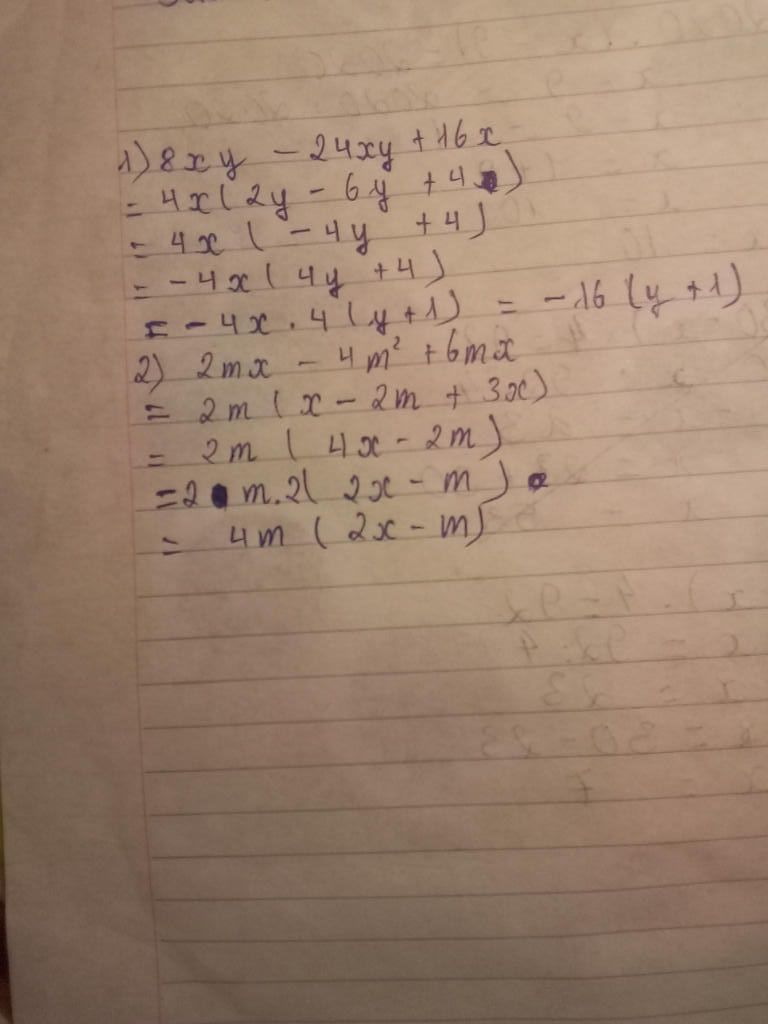 1) 8xy - 24xy + 16x
= 4x(2y - 6y + 4)
= 4x (- 4y + 4)
= - 4x(4y + 4)
= - 4x . 4(y+1) = - 16 (y + 1)
2) 2mx - 4m² + 6mx
= 2m (x - 2m + 3x)
= 2m (4x - 2m)
= 2 m.2( 2x - m)
= 4m (2x - m)